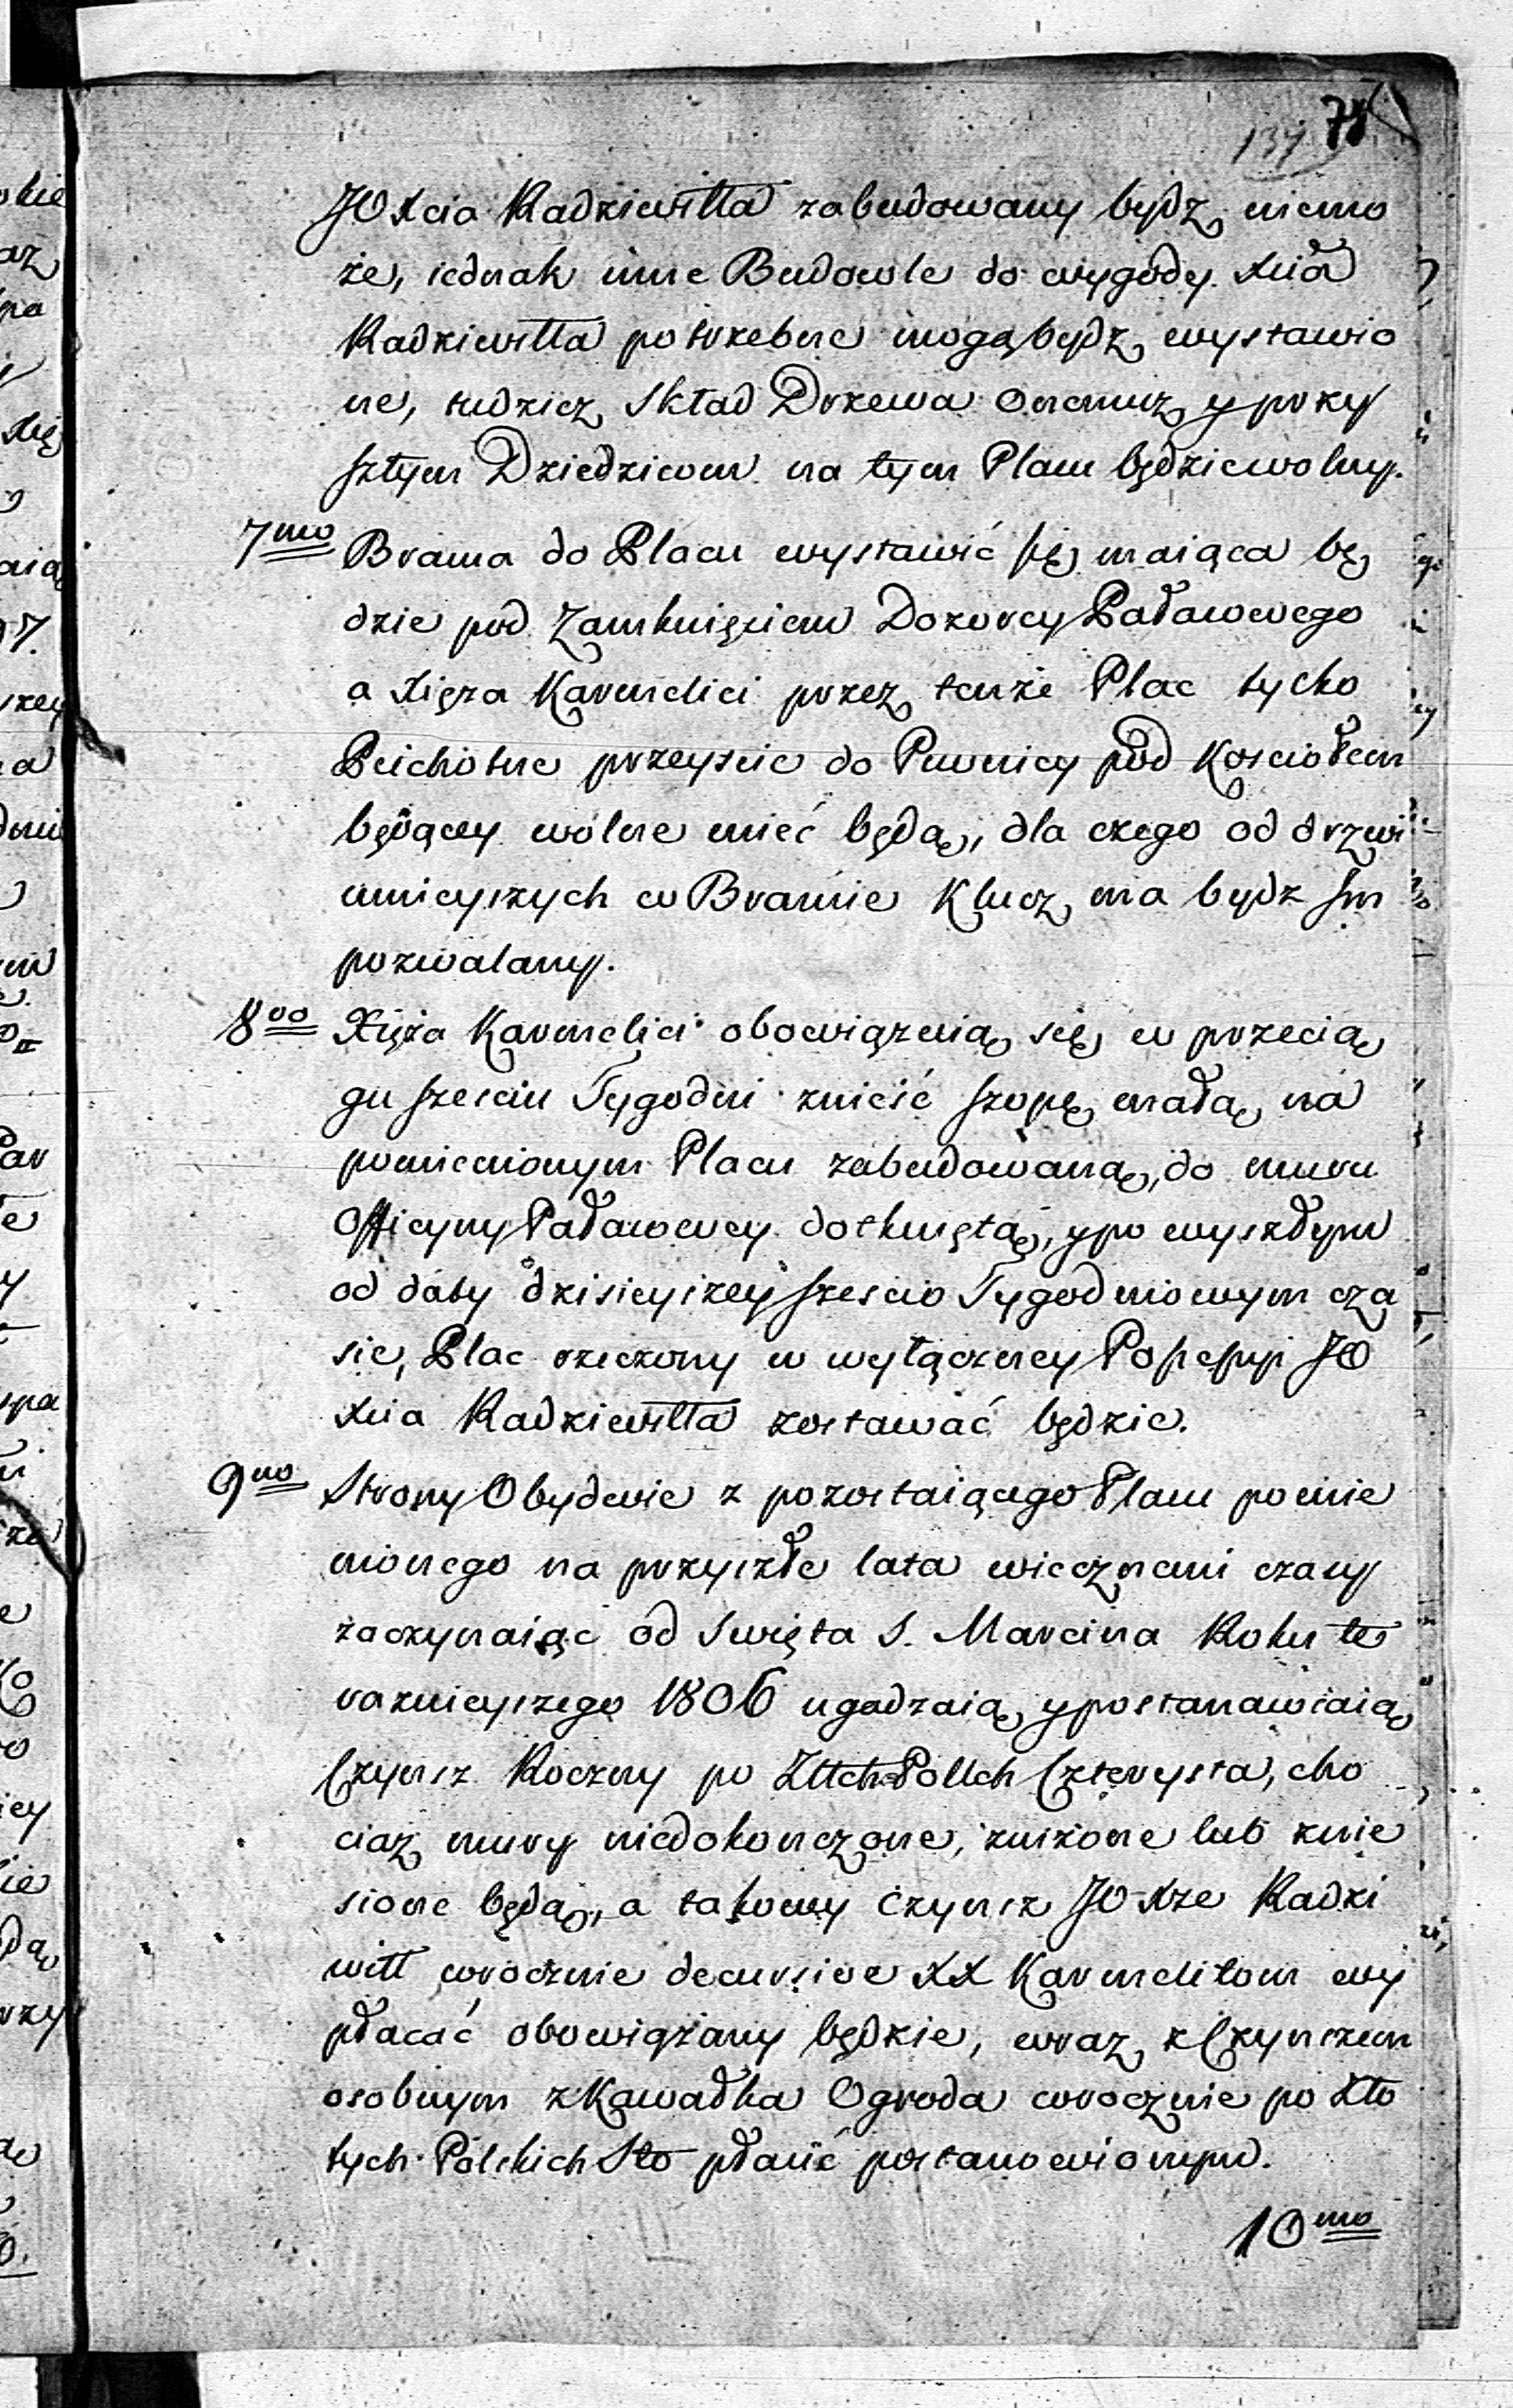 137 75
JO Xcia Radziwiłła zabudowany bydz niemo
że, iednak inne Budowle do wygody Xcia
Radziwiłła potrzebne mogą bydz wystawio
ne, tudzież Skład Drzewa Onemuz y przy
szłym Dziedzicom na tym Placu będzie wolny.
7mo Brama do Placu wystawić się maiąca bę
dzie pod Zamknięciem Dozorcy Pałacowego
a Xięża Karmelici przez tenże Plac tylko
Piechotne przeyscie do Piwnicy pod Kosciołem
będącey wolne mieć będą, dla czego od drzwi
mnieyszych w Bramie Klucz ma bydz Im
pozwalany.
8vo Xięża Karmelici obowiązuią się w przecią
gu szesciu Tygodni znieść szopę małą na
pomienionym Placu zabudowaną, do muru
Officyny Pałacowey dotknętą, y po wyszłym
od daty dzisieyszey szescio Tygodniowym cza
sie, Plac rzeczony w wyłączney Possessyi JO
Xcia Radziwiłła zostawać będzie.
9no Strony Obydwie z pozostaiącego Placu pomie
nionego na przyszłe lata wiecznemi czasy
zaczynaiąc od Swięta S. Marcina Roku te
raznieyszego 1806 ugadzaią y postanawiaią
Czynsz Roczny po Złłch Pollch Czterysta, cho
ciaż mury niedokonczone, zniżone lub znie
sione będą, a takowy czynsz JO Xże Radzi
wiłł corocznie decursive XX Karmelitom wy
płacać obowiązany będzie, wraz z Czynszem
osobnym z Kawałka Ogroda corocznie po Zło
tych Polskich Sto płacić postanowionym.
10mo